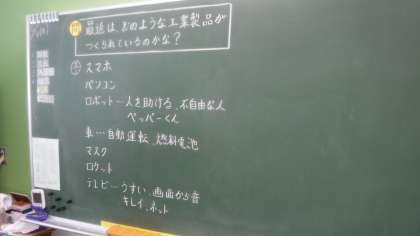 最近は、どのような工業製品が
つくられているのかな？
スマホ
パソコン
ロボット…人を助ける、不自由な人
ペッパーくん
車…自動運転、燃料電池
マスク
ロケット
テレビ…うすい、画面から音
キレイ、ネット